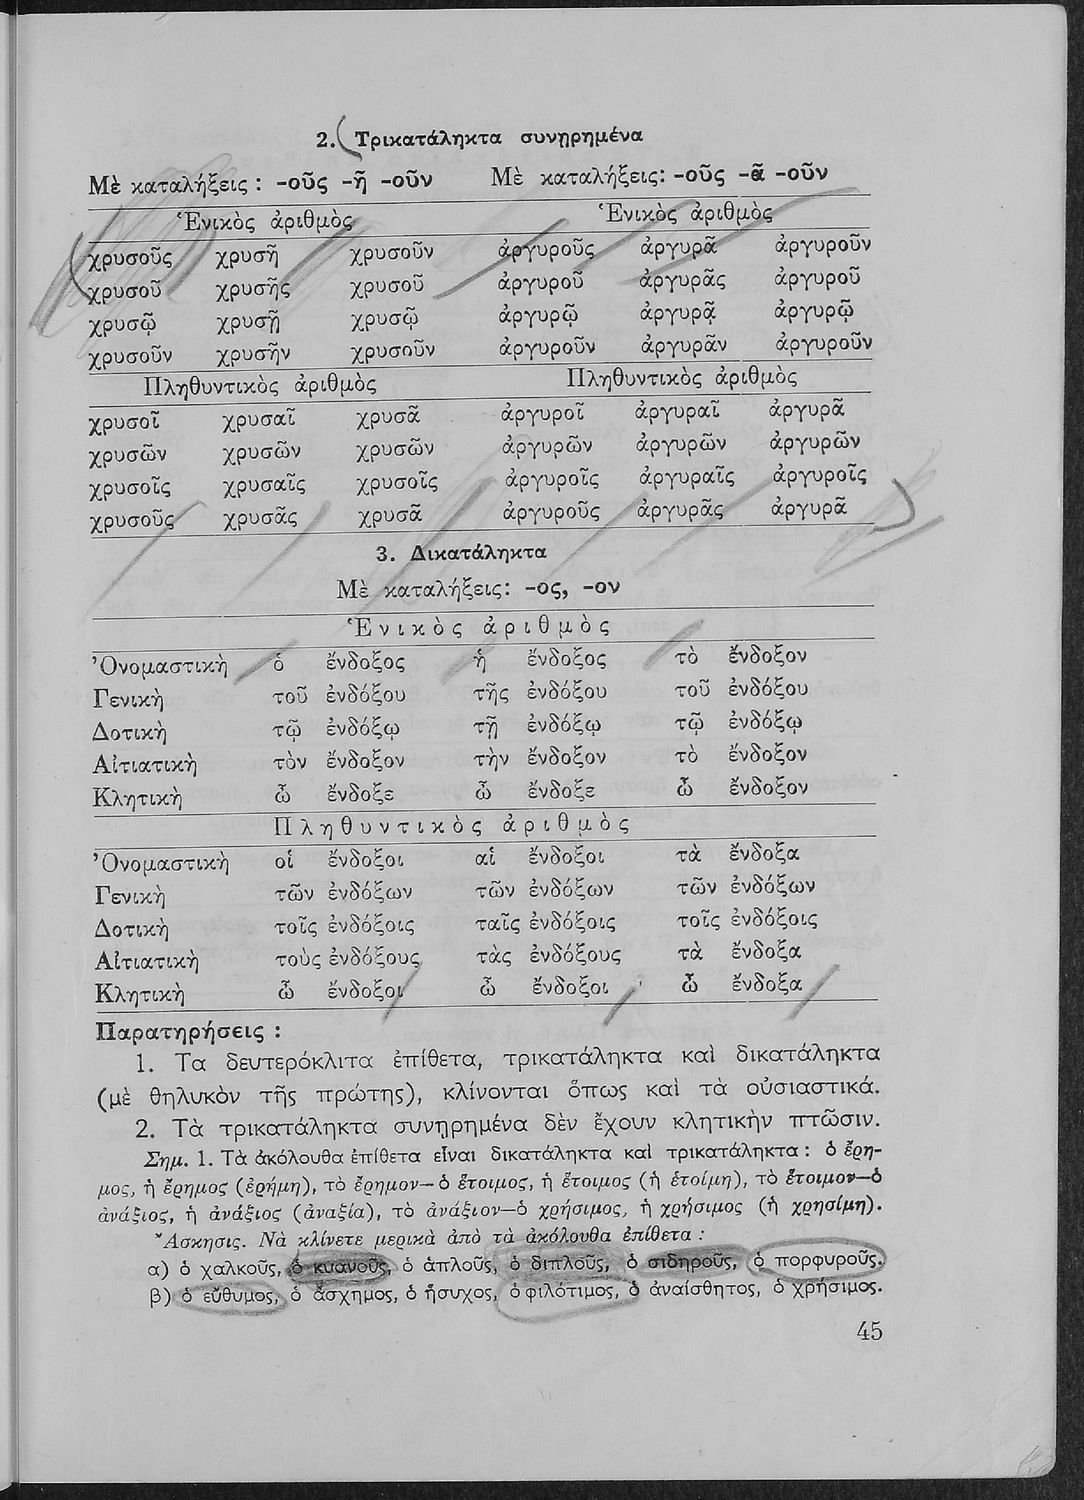 2. Τρικατάληκτα συνῃρημένα
Μὲ καταλήξεις : -οῦς -ῆ -οῦν Μὲ καταλήξεις: -οῦς -ᾶ -οῦν
Ἑνικὸς ἀριθμὸς Ἑνικὸς ἀριθμὸς
χρυσοῦς χρυσῆ χρυσοῦν ἀργυροῦς ἀργυρᾶ ἀργυροῦν
χρυσοῦ χρυσῆς χρυσοῦ ἀργυροῦ ἀργυρᾶς ἀργυροῦ
χρυσῷ χρυσῇ χρυσῷ ἀργυρῷ ἀργυρᾷ ἀργυρῷ
χρυσοῦν χρυσῆν χρυσοῦν ἀργυροῦν ἀργυρᾶν ἀργυροῦν
Πληθυντικὸς ἀριθμὸς Πληθυντικὸς ἀριθμὸς
χρυσοῖ χρυσαῖ χρυσᾶ ἀργυροῖ ἀργυραῖ ἀργυρᾶ
χρυσῶν χρυσῶν χρυσῶν ἀργυρῶν ἀργυρῶν ἀργυρῶν
χρυσοῖς χρυσαῖς χρυσοῖς ἀργυροῖς ἀργυραῖς ἀργυροῖς
χρυσοῦς χρυσᾶς χρυσᾶ ἀργυροῦς ἀργυρᾶς ἀργυρᾶ
3. Δικατάληκτα
Μὲ καταλήξεις: -ος, -ον
Ἑνικὸς ἀριθμὸς
Ὀνομαστικὴ ὁ ἔνδοξος ἡ ἔνδοξος τὸ ἔνδοξον
Γενικὴ τοῦ ἐνδόξου τῆς ἐνδόξου τοῦ ἐνδόξου
Δοτικὴ τῷ ἐνδόξῳ τῇ ἐνδόξῳ τῷ ἐνδόξῳ
Αἰτιατικὴ τὸν ἔνδοξον τὴν ἔνδοξον τὸ ἔνδοξον
Κλητικὴ ὦ ἔνδοξε ὦ ἔνδοξε ὦ ἔνδοξον
Πληθυντικὸς ἀριθμὸς
Ὀνομαστικὴ οἱ ἔνδοξοι αἱ ἔνδοξοι τὰ ἔνδοξα
Γενικὴ τῶν ἐνδόξων τῶν ἐνδόξων τῶν ἐνδόξων
Δοτικὴ τοῖς ἐνδόξοις ταῖς ἐνδόξοις τοῖς ἐνδόξοις
Αἰτιατικὴ τοὺς ἐνδόξους τὰς ἐνδόξους τὰ ἔνδοξα
Κλητικὴ ὦ ἔνδοξοι ὦ ἔνδοξοι ὦ ἔνδοξα
Παρατηρήσεις :
1. Τα δευτερόκλιτα ἐπίθετα, τρικατάληκτα καὶ δικατάληκτα
(μὲ θηλυκὸν τῆς πρώτης), κλίνονται ὅπως καὶ τὰ οὐσιαστικά.
2. Τὰ τρικατάληκτα συνῃρημένα δὲν ἔχουν κλητικὴν πτῶσιν.
Σημ. 1. Τὰ ἀκόλουθα ἐπίθετα εἶναι δικατάληκτα καὶ τρικατάληκτα : ὁ ἔρη-
μος, ἡ ἔρημος (ἐρήμη), τὸ ἔρημον—ὁ ἕτοιμος, ἡ ἕτοιμος (ἡ ἑτοίμη), τὸ ἕτοιμον—ὁ
ἀνάξιος, ἡ ἀνάξιος (ἀναξία), τὸ ἀνάξιον—ὁ χρήσιμος, ἡ χρήσιμος (ἡ χρησίμη).
Ἄσκησις. Νὰ κλίνετε μερικὰ ἀπὸ τὰ ἀκόλουθα ἐπίθετα :
α) ὁ χαλκοῦς, ὁ κυανοῦς, ὁ ἁπλοῦς, ὁ διπλοῦς, ὁ σιδηροῦς, ὁ πορφυροῦς.
β) ὁ εὔθυμος, ὁ ἄσχημος, ὁ ἥσυχος, ὁ φιλότιμος, ὁ ἀναίσθητος, ὁ χρήσιμος.
45